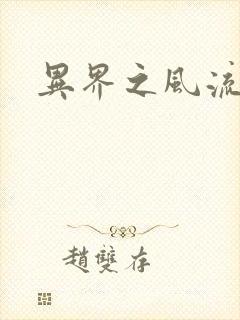 異界之風流
趙雙存